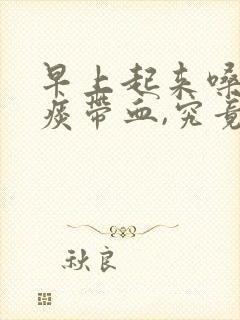 早上起来嗓
痰带血,究竟
秋良